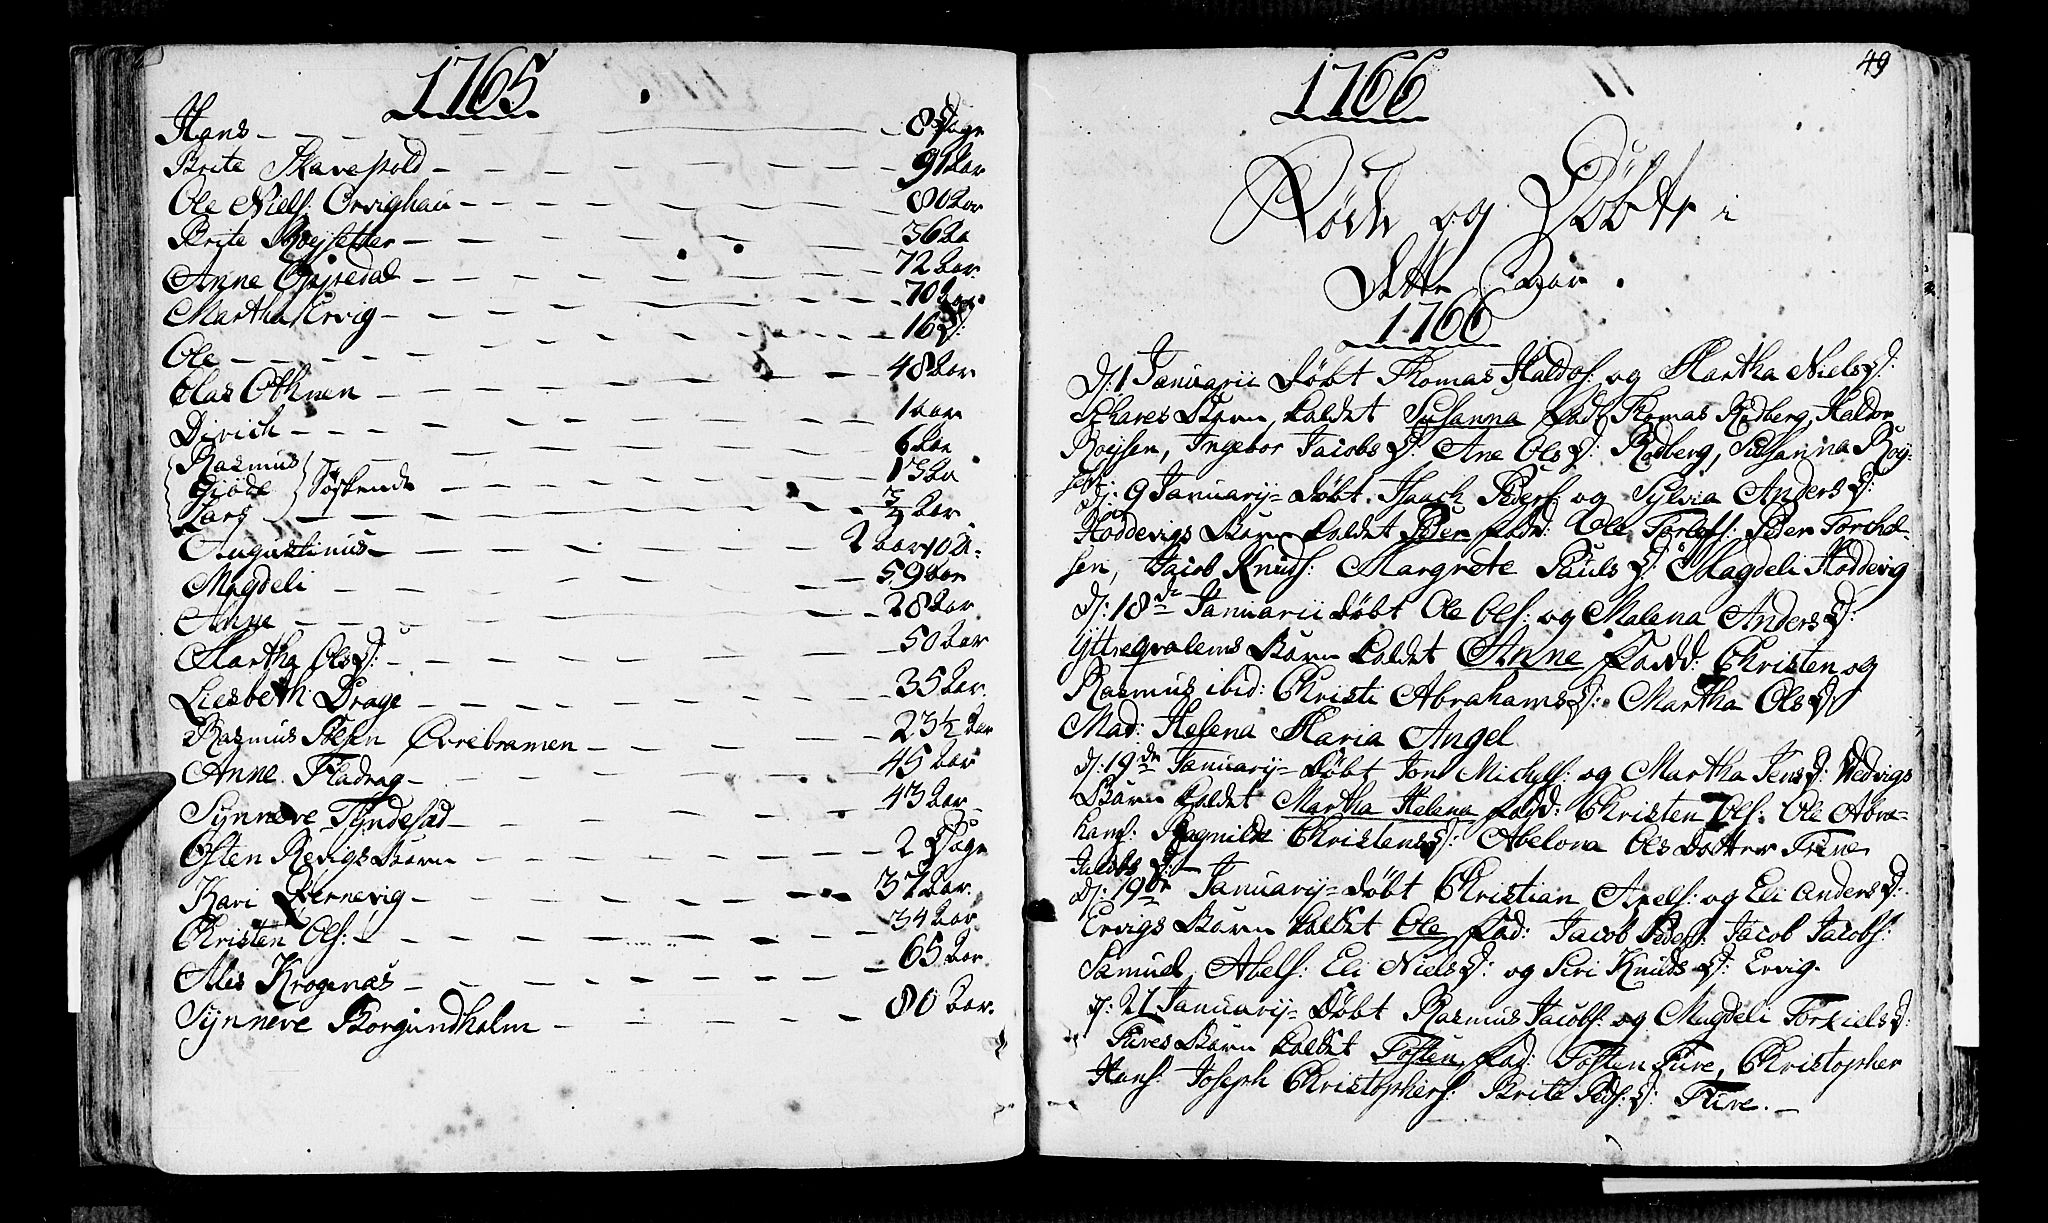 1765
Hans - - - 8 Dage
Brite Skarepold - 91 Aar
Ole Niels: Orvighau - 80 Aar
Brite Røysetter - 36 Aa
Anne - 72 Aar
Martha Ervig - 70 Aar
Ole - 16 D:
Clas Othmen - 48 Aar
Dirich - 1 aar
Rasmus - 6 Aar
Giøde } Søskende - 13 Aa
Lars - Aar
Augustinus - 2 aar 10 U:
Magdeli - 59 Aar
Anne - 28 Aar
Martha Ols D: - 50 Aar
Liesbeth Drage - 35 Aar.
Rasmus Øvrebramen - 23 ½ Aar
Anne Fladrag - 45 Aar
Synneve - 43 Aar
Osten Revigs Barn - 2 Dage
Kari - 37 Aar.
Christen Ols: - 34 Aar
Ales Krogenæs - 65 Aar.
Synneve Borgundholm - 80 Aar.
49
1766
Fødde og Døbte i
Dette Aar.
1766
D: 1 Januarii Døbt Thomas Haldos: og Martha Niels D:
Barn kaldet Susanna Fad: Thomas Rødberg, Haldor
Roysen, Ingebor Jacobs D: Ane Ols D: Rødberg, Susanna Røy-
set:
D: 9 Januarij Døbt Isach Peders: og Sylvia Anders D:
Hoddevigs Barn kaldet Peder Fadd: Ole Torlefs: Peder
sen, Jacob Knuds: Margrete Pauls D: Magdeli Hoddevig
D: 18de Januarii Døbt Ole Ols: og Malena Anders D:
Barn kaldet Anne Fadd: Christen og
Rasmus ibid: Christi Abrahams D: Martha Ols D
Mad: Helena Maria Angel
D: 19de Januarij Døbt Jon Michels: og Martha Jens D: Hedvigs
Barn kaldet Martha Helena Fadd: Christen Ols: Ole Abra-
hams: Ragnilde Christens D: Abelona Ols Dotter Trine
Jacobs D:
D: 19de Januarij Døbt Christian Axels: og Eli Anders D:
Ervigs Barn kaldet Ole Fad: Jacob Peders: Jacob Jacobs:
Samuel Abels: Eli Niels D: og Siri Knuds D: Ervig.
D: 21 Januarij Døbt Rasmus Jacobs: og Magdeli Torkiels D:
Fures Barn kaldet Tosten Fad: Tosten Fure, Christopher
Hans: Joseph Christophers: Brite Peds: D: Fure.